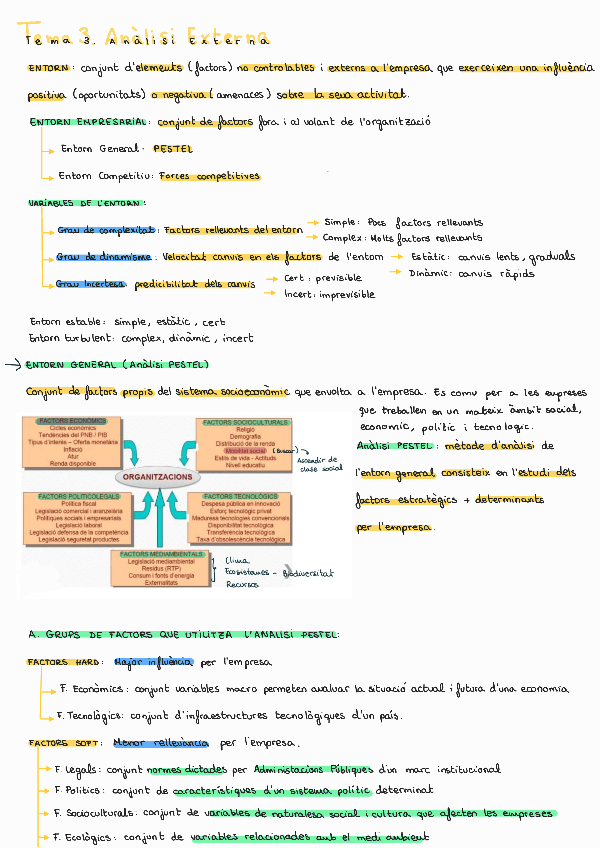 Tema 3. Anàlisi Externa
ENTORN: conjunt d'elements (factors) no controlables i externs a l'empresa que exerceixen una influència
positiva (oportunitats) o negativa (amenaces) sobre la seua activitat.
ENTORN EMPRESARIAL: conjunt de factors fora i al voltant de l'organització
Entorn General: PESTEL
Entorn Competitiu: Forces competitives
VARIABLES DE L'ENTORN:
Grau de complexitat: Factors rellevants del entorn
Simple: Pocs factors rellevants
Complex: Molts factors rellevants
Grau de dinamisme: Velocitat canvis en els factors de l'entorn
Estàtic: canvis lents, graduals
Dinàmic: canvis ràpids
Grau Incertesa: predicibilitat dels canvis
Cert: previsible
Incert: imprevisible
Entorn estable: simple, estàtic, cert
Entorn turbulent: complex, dinàmic, incert
ENTORN GENERAL (Anàlisi PESTEL)
Conjunt de factors propis del sistema socioeconòmic que envolta a l'empresa. És comú per a les empreses
que treballen en un mateix àmbit social,
econòmic, polític i tecnològic.
Anàlisi PESTEL: mètode d'anàlisi de
l'entorn general consisteix en l'estudi dels
factors estratègics + determinants
per l'empresa.
FACTORS ECONÒMICS
Cicles econòmics
Tendències del PNB / PIB
Tipus d'interès – Oferta monetària
Inflació
Atur
Renda disponible
FACTORS SOCIOCULTURALS
Religió
Demografia
Distribució de la renda
Mobilitat social (Buscar)
Estils de vida - Actituds
Nivell educatiu
Ascendir de
clase social
ORGANITZACIONS
FACTORS POLITICOLEGALS
Política fiscal
Legislació comercial i aranzelària
Polítiques socials i empresarials
Legislació laboral
Legislació defensa de la competència
Legislació seguretat productes
FACTORS TECNOLÒGICS
Despesa pública en innovació
Esforç tecnològic privat
Maduresa tecnologies convencionals
Disponibilitat tecnològica
Transferència tecnològica
Taxa d'obsolescència tecnològica
FACTORS MEDIAMBIENTALS
Legislació mediambiental
Residus (RTP)
Consum i fonts d'energia
Externalitats
Clima
Ecosistemes - Biodiversitat
Recursos
A. GRUPS DE FACTORS QUE UTILITZA L'ANALISI PESTEL:
FACTORS HARD: Major influència per l'empresa
F. Econòmics: conjunt variables macro permeten avaluar la situació actual i futura d'una economia
F. Tecnològics: conjunt d'infraestructures tecnològiques d'un país.
FACTORS SOFT: Menor rellevància per l'empresa.
F. Legals: conjunt normes dictades per Administracions Públiques d'un marc institucional
F. Polítics: conjunt de característiques d'un sistema polític determinat
F. Socioculturals: conjunt de variables de naturalesa social i cultura que afecten les empreses
F. Ecològics: conjunt de variables relacionades amb el medi ambient